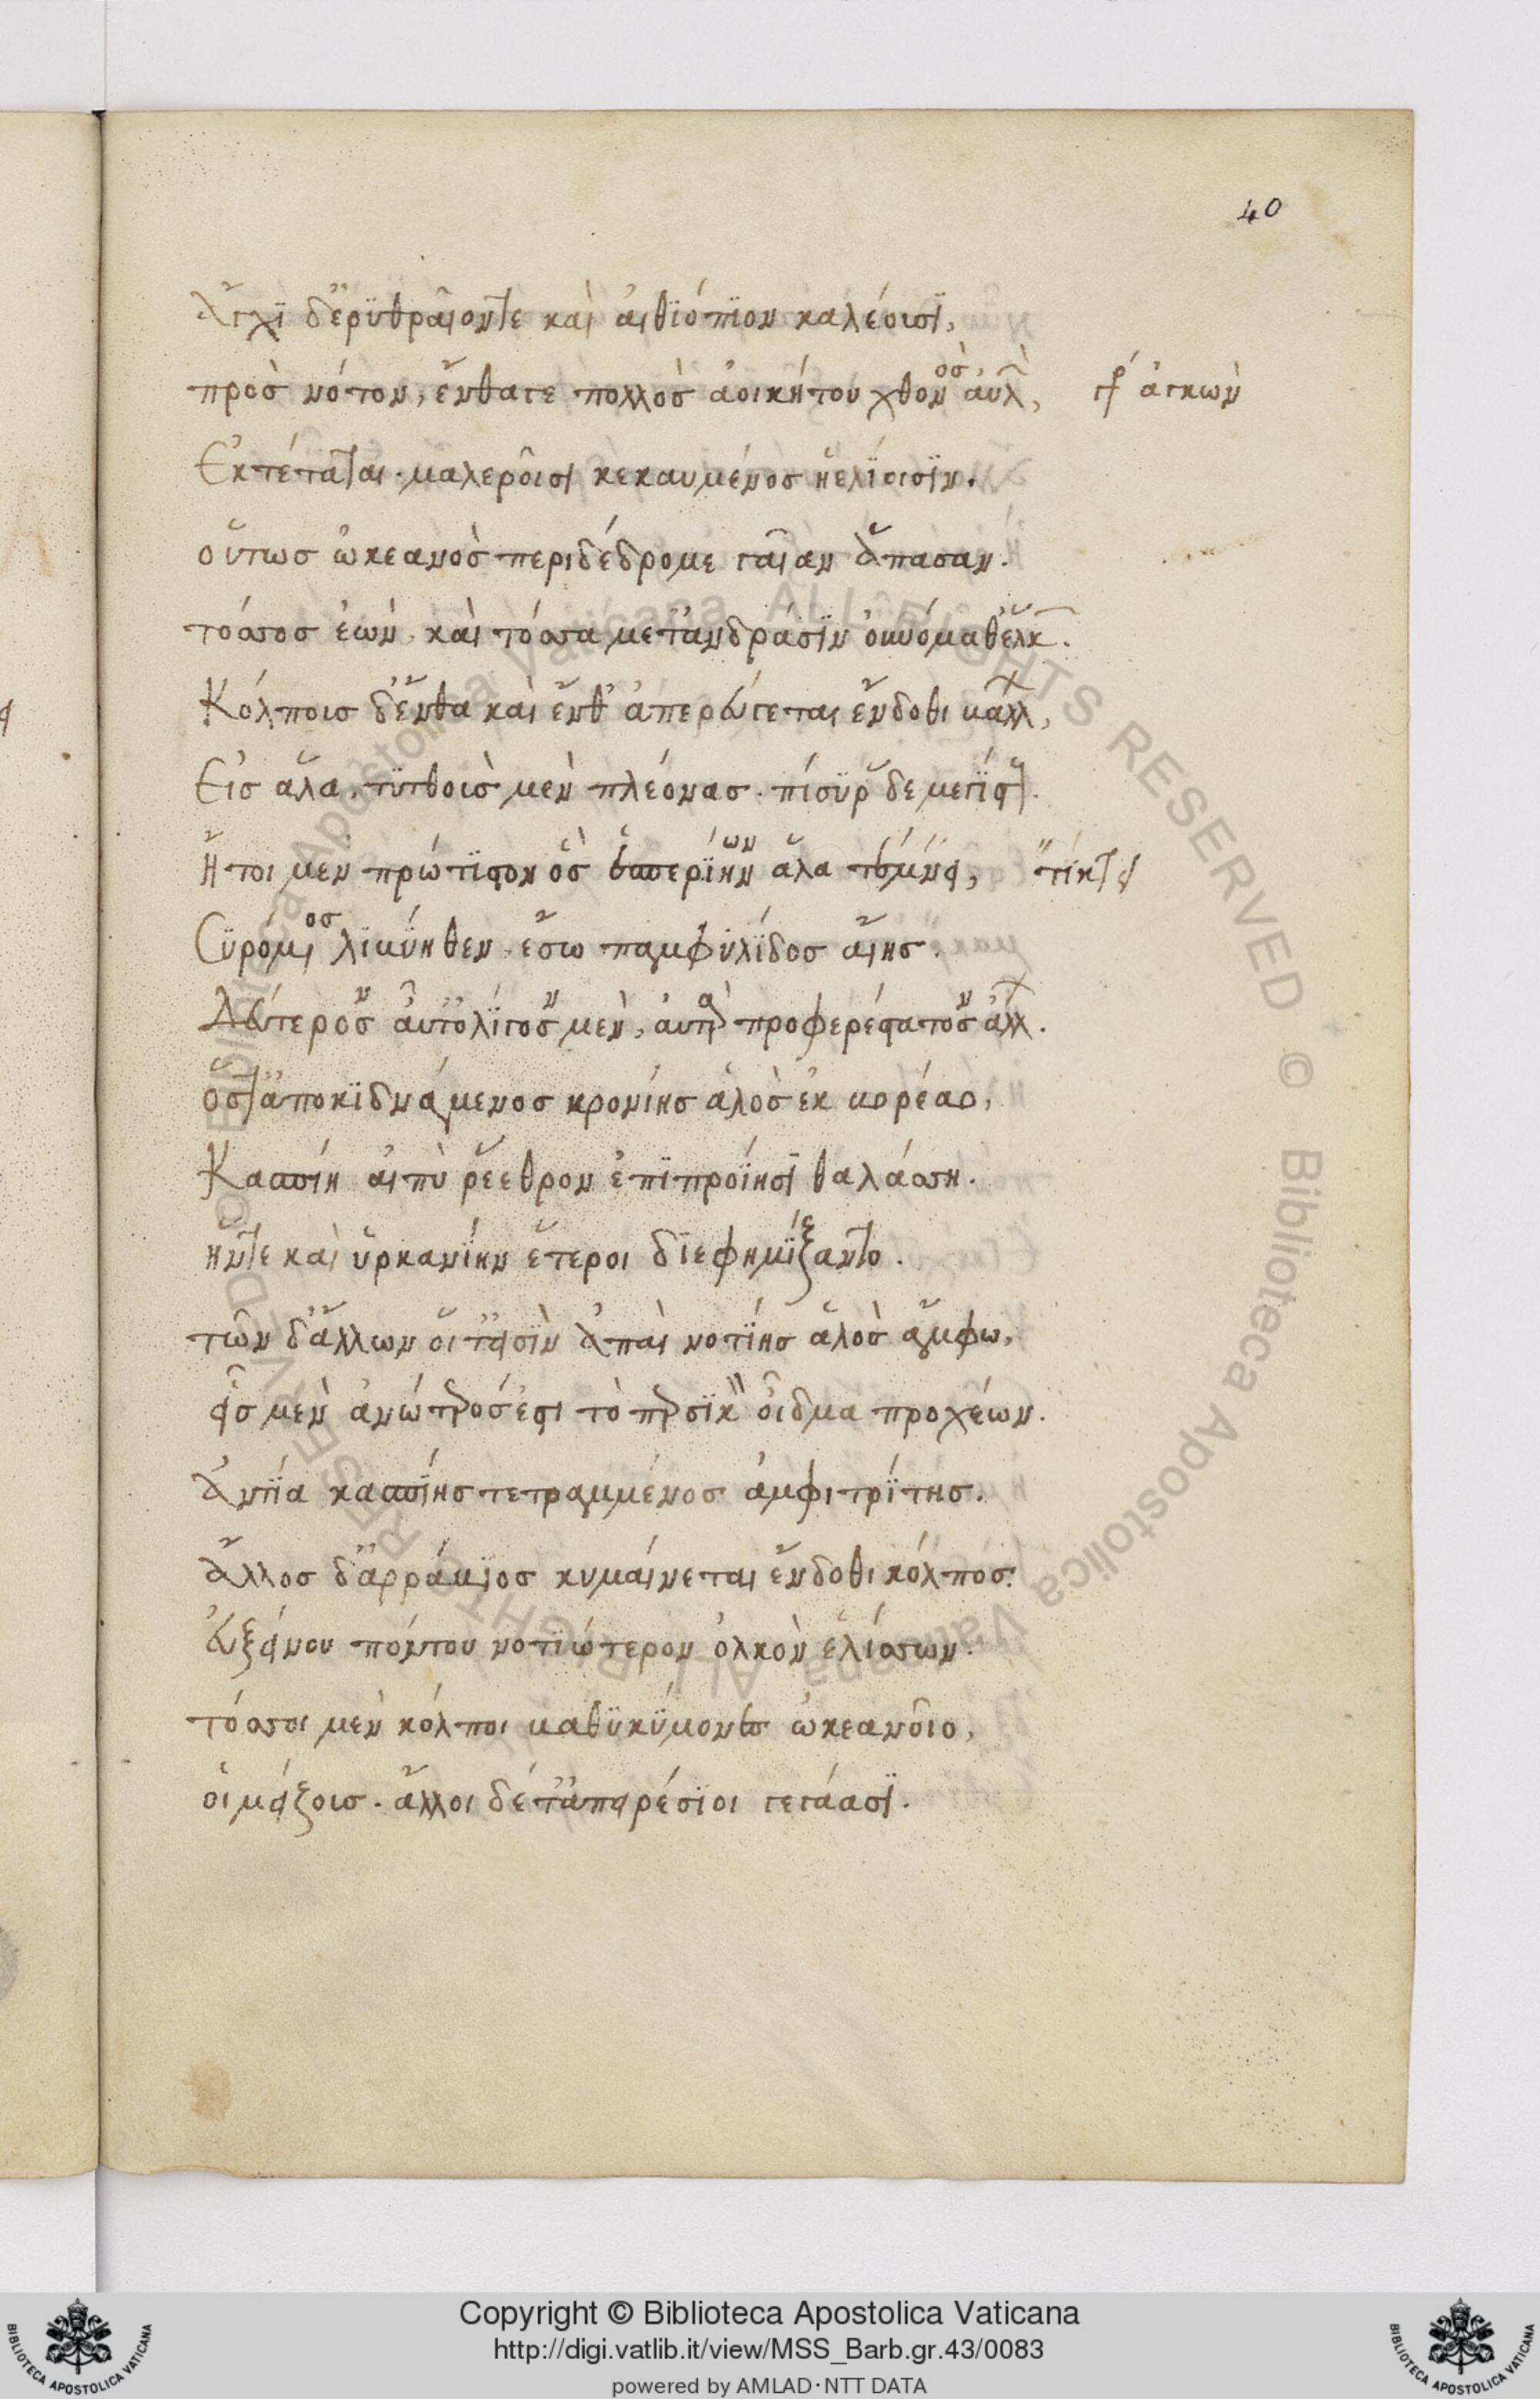 40
ἄγχι δ' ἐρϋθραῖόν τε καὶ αἰθϊόπϊον καλέουσϊ,
πρὸσ νότον, ἔνθά γε πολλὸσ ἀοικήτου χθονὸσ αὐλ, γρ ἀγκὼν
Ἐκτέταται· μαλεροῖσι κεκαυμένοσ ἠελΐοισϊν.
οὕτωσ ὠκεανὸσ περιδέδρομε γαῖαν ἅπασαν.
τόσσοσ ἐὼν, καὶ τόσσα μετ' ἀνδράσϊν οὐνόμαθ' ἕλκ.
Κόλποισ δ' ἔνθα καὶ ἔνθ' ἀπερεύγεται ἔνδοθι βάλλ,
Εἰσ ἅλα, τϋτθοὺσ μὲν πλέονασ· πίσϋρ δὲ μεγίστ.
Ἤτοι μὲν πρώτϊστον ὃσ ἑσπερίην ων ἅλα τέμνει, τίκτει
Σϋρόμενοσ λϊβύηθεν ἔσω παμφϋλΐδοσ αἴησ.
Δεύτεροσ αὖτ' ὀλΐγοσ μὲν, ἀτὰρ προφερέστατοσ ἄλλ.
ὅστ' ἀποκϊδνάμενοσ κρονίησ ἁλὸσ ἐκ βορέαο,
Κασπίη αἰπὺ ῥέεθρον ἐπϊπροΐησϊ θαλάσση.
ἥν τε καὶ ὑρκανΐην ἕτεροι δϊεφημΐξαντο.
τῶν δ' ἄλλων οἵ τ' εἰσϊν ἀπαὶ νοτΐησ ἁλὸσ ἄμφω,
εἷσ μὲν ἀνώτεροσ ἐστι τὸ περσϊκὸν οἶδμα προχεύων.
Ἀντΐα κασπΐησ τετραμμένοσ ἀμφιτρΐτησ.
Ἄλλοσ δ' ἀρράβιοσ κυμαίνεται ἔνδοθι κόλποσ.
Εὐξείνου πόντου νοτϊώτερον ὁλκὸν ἑλίσσων.
τόσσοι μὲν κόλποι βαθϋκϋμονοσ ὠκεανοῖο,
οἱ μείζουσ· ἄλλοι δέ τ' ἀπειρέσϊοι γεγάασϊ.
Copyright © Biblioteca Apostolica Vaticana
http://digi.vatlib.it/view/MSS_Barb.gr.43/0083
powered by AMLAD·NTT DATA